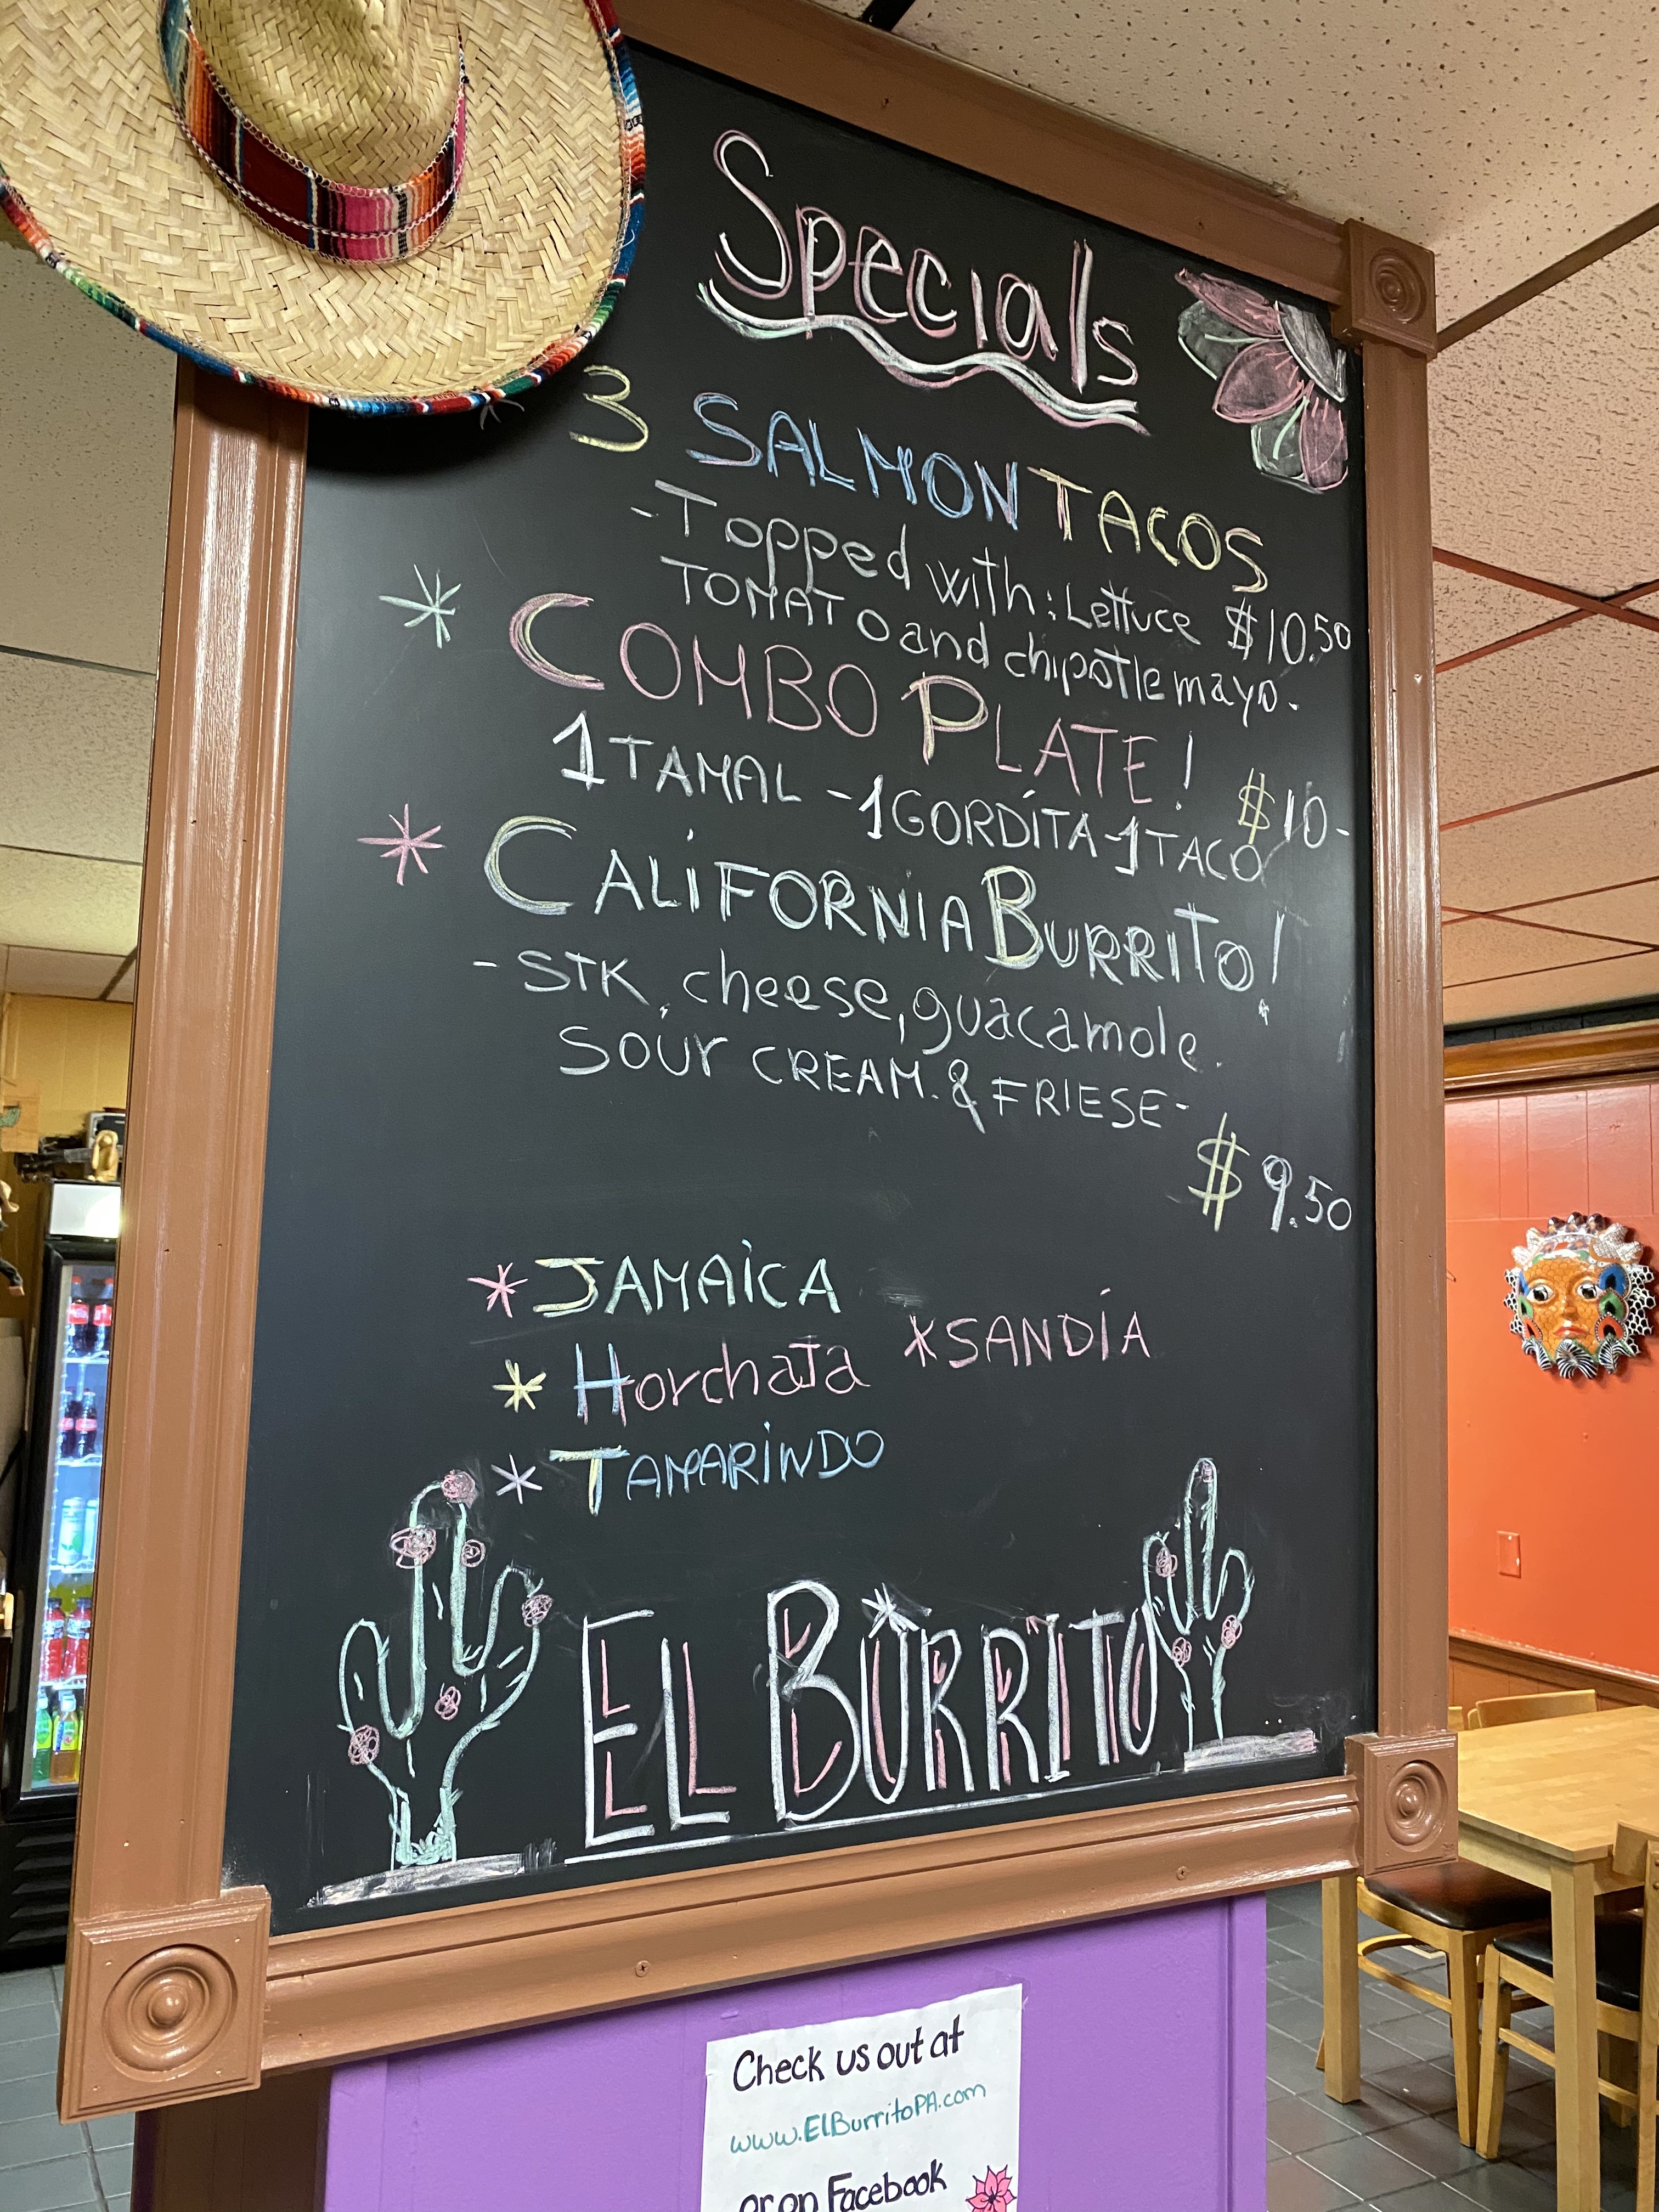 Specials
3 SALMON TACOS
-Topped with: Lettuce $10.50
TOMATO and chipotle mayo.
COMBO PLATE!
1 TAMAL -1 GORDÍTA-1 TACO $10-
CALIFORNIA BURRITO!
- STK, cheese, guacamole.
SOUR CREAM. & FRIESE-
$9.50
* JAMAICA
* Horchata *SANDÍA
* TAMARINDO
EL BURRITO
Check us out at
www.ElBurritoPA.com
or on Facebook